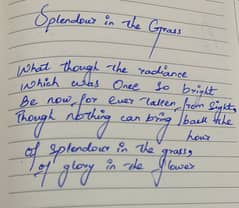 Splendour in the Grass
What though the radiance
which was once so bright
Be now for ever taken from sight,
Though nothing can bring back the
hour
of splendour in the grass,
of glory in the flower